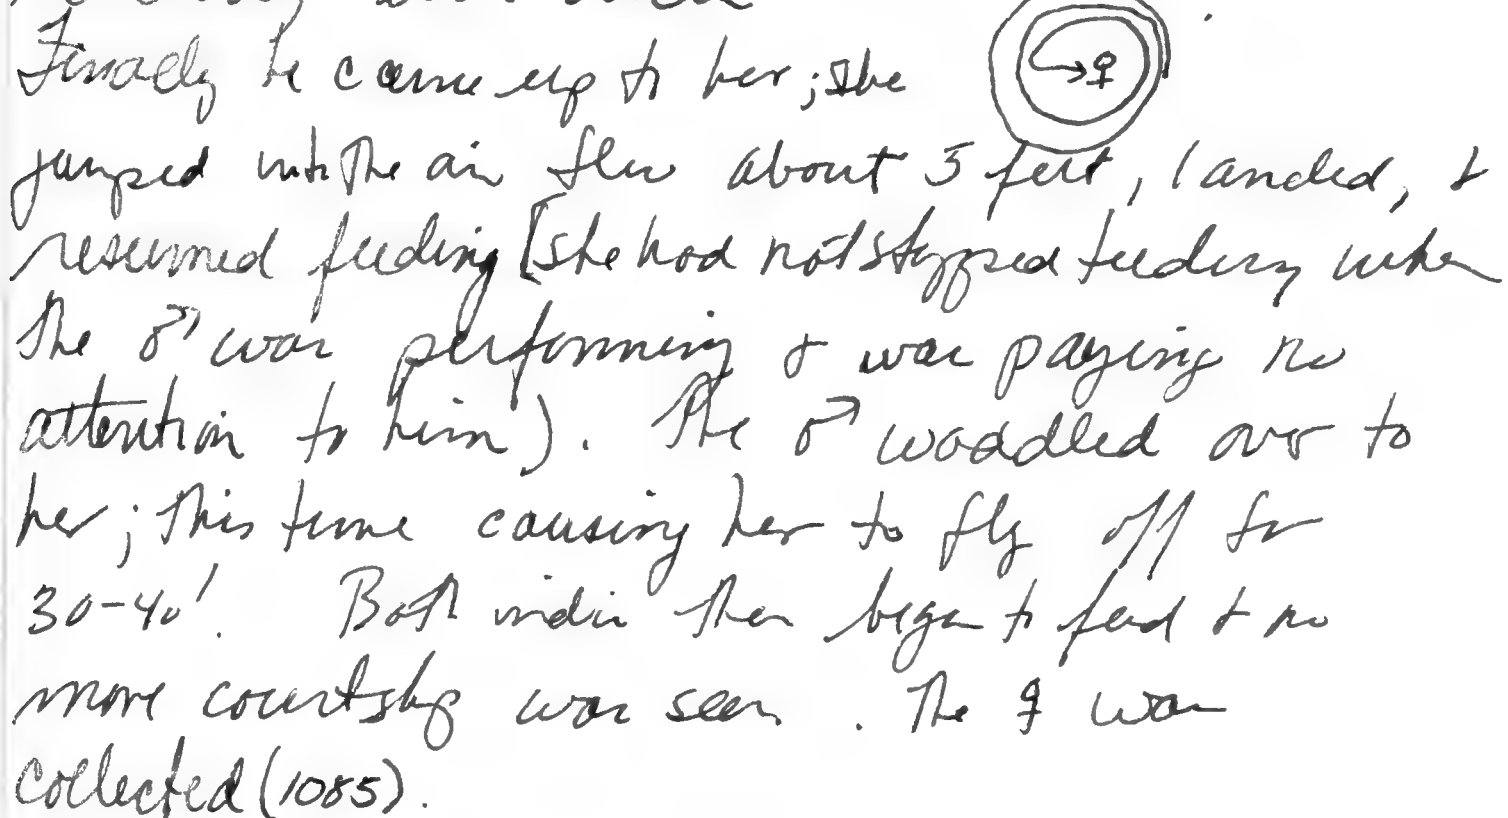 Finally he came up to her; she
jumped into the air flew about 5 feet, landed, &
resumed feeding [she had not stopped feeding when
the ♂ was performing & was paying no
attention to him). The ♂ waddled over to
her; this time causing her to fly off for
30-40'. Both indiv then began to feed & no
more courtship was seen. The ♀ was
collected (1085).